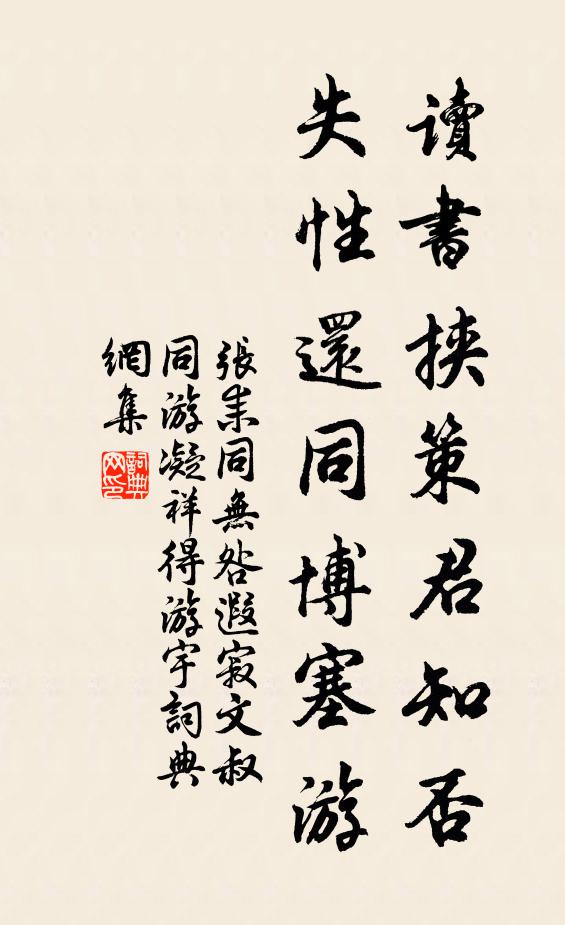 讀書挾策君知否
失性還同博塞游
張耒同無咎遐寂文叔
同游凝祥得游字詞典
網集
詞典網印